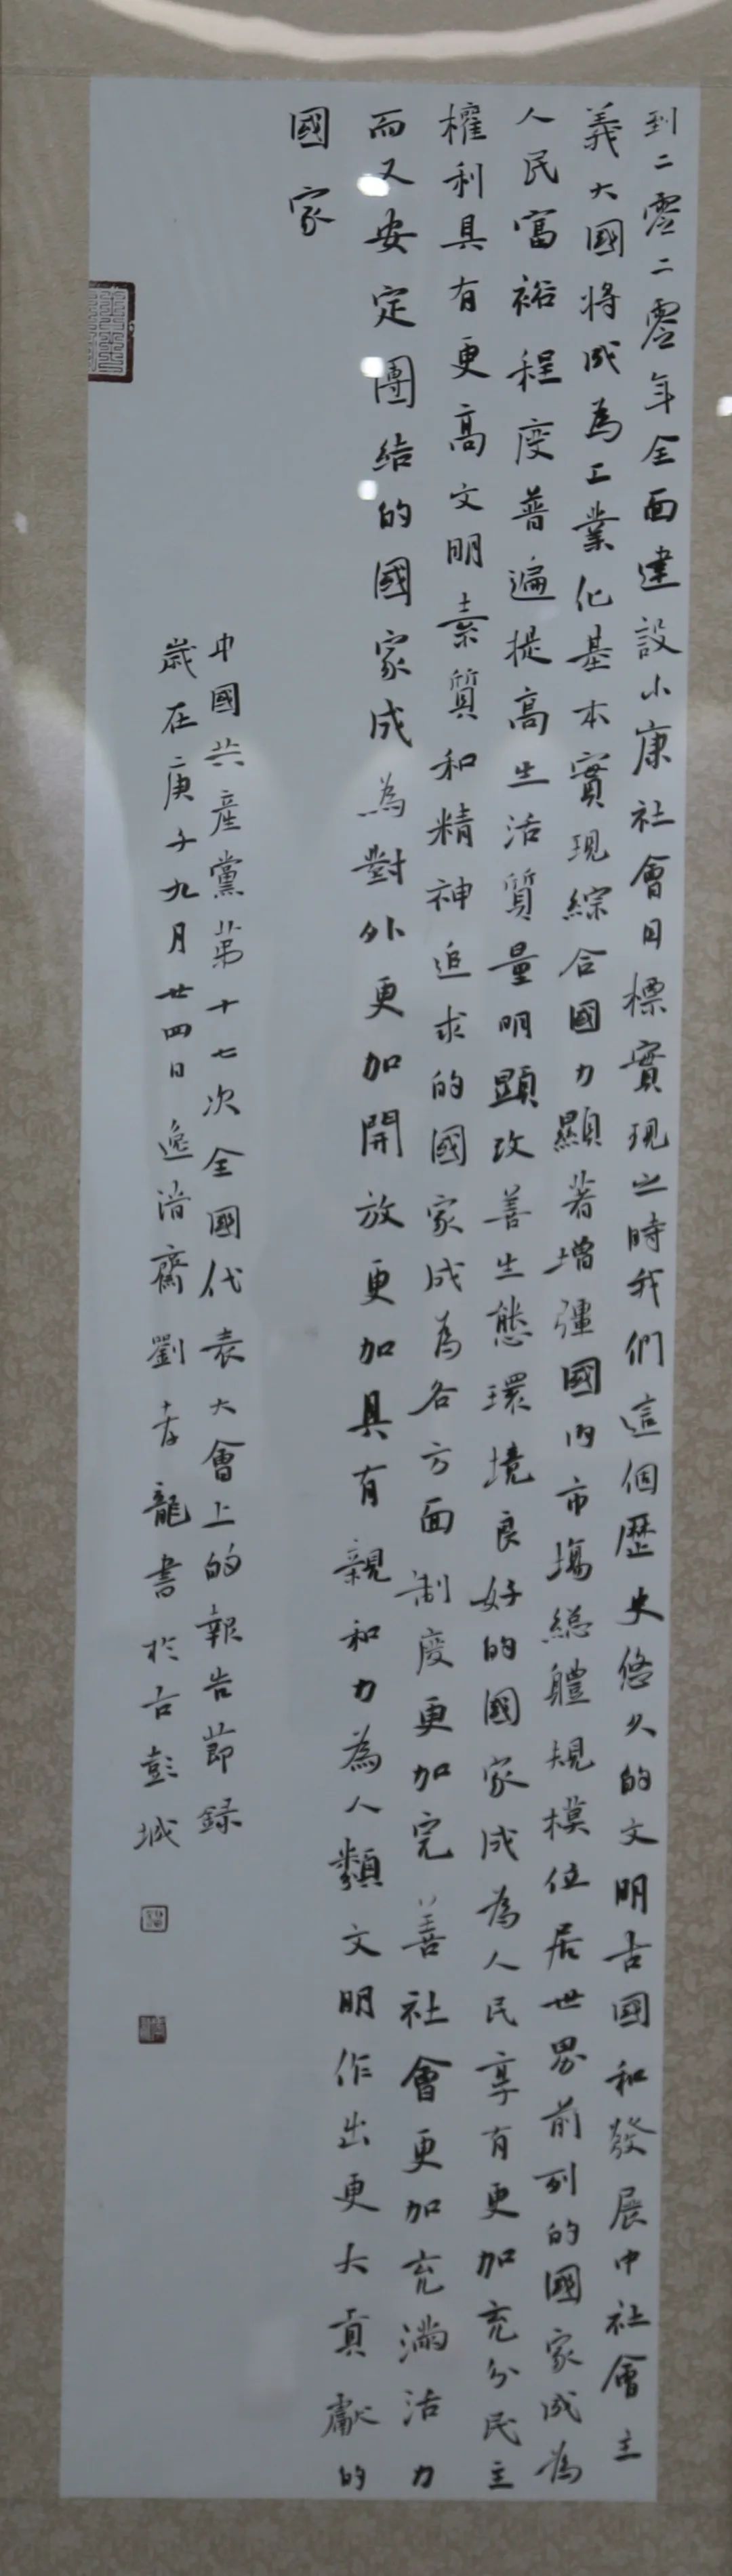 到二零二零年全面建設小康社會目標實現之時我們這個歷史悠久的文明古國和發展中社會主
義大國將成為工業化基本實現綜合國力顯著增強國內市場總體規模位居世界前列的國家成為
人民富裕程度普遍提高生活質量明顯改善生態環境良好的國家成為人民享有更加充分民主
權利具有更高文明素質和精神追求的國家成為各方面制度更加完善社會更加充滿活力
而又安定團結的國家成為對外更加開放更加具有親和力為人類文明作出更大貢獻的
國家
中國共產黨第十七次全國代表大會上的報告節錄
歲在庚子九月廿四日逸清齋劉孝龍書於古彭城